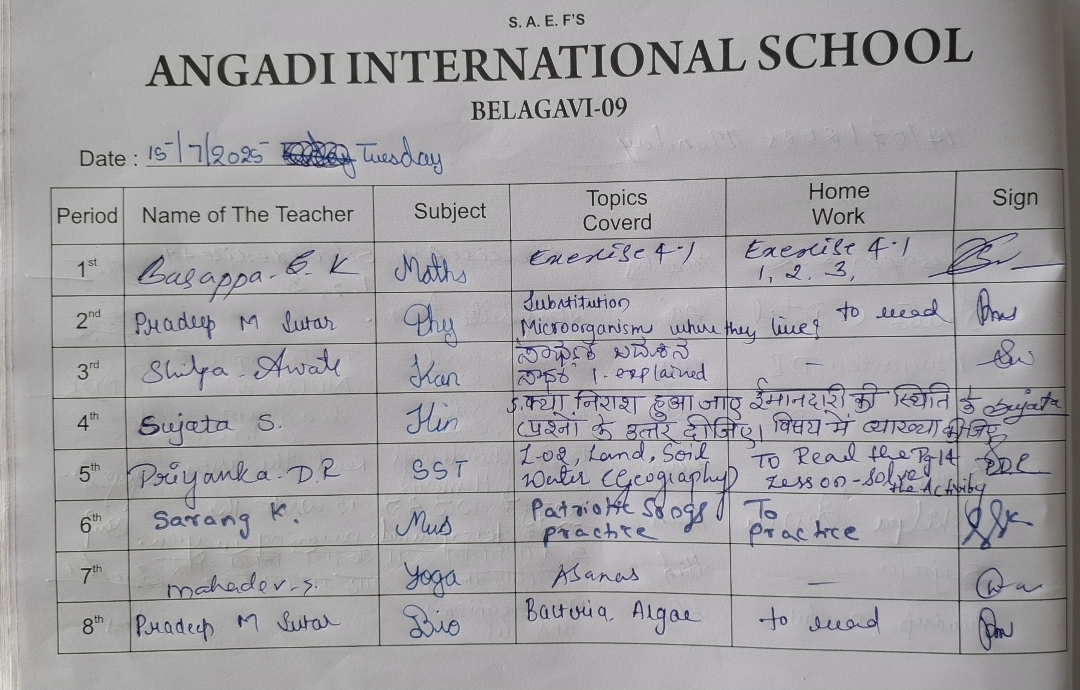 S. A. E. F'S
ANGADI INTERNATIONAL SCHOOL
BELAGAVI-09
Date : 15/7/2025 Tuesday
Period Name of The Teacher Subject Topics Coverd Home Work Sign
1st Basappa. B. K Maths Exercise 4.1 Exercise 4.1
1, 2, 3,
2nd Pradeep M Sutar Phy Substitution
Microorganism where they live? to read
3rd Shilpa Awate Kan
1. explained –
4th Sujata S. Hin 5.क्या निराश हुआ जाए ईमानदारी की स्थिति के Sujata
(प्रश्नों के उत्तर दीजिए। विषय में व्याख्या कीजिए
5th Priyanka.D.R SST L-02, Land, Soil
Water (Geography) To Read the Pg-14
Lesson-Solve
the Activity
6th Sarang K. Mus Patriotic Songs
practice To
Practice
7th mahadev.s. Yoga Asanas —
8th Pradeep M Sutar Bio Bacteria, Algae to read